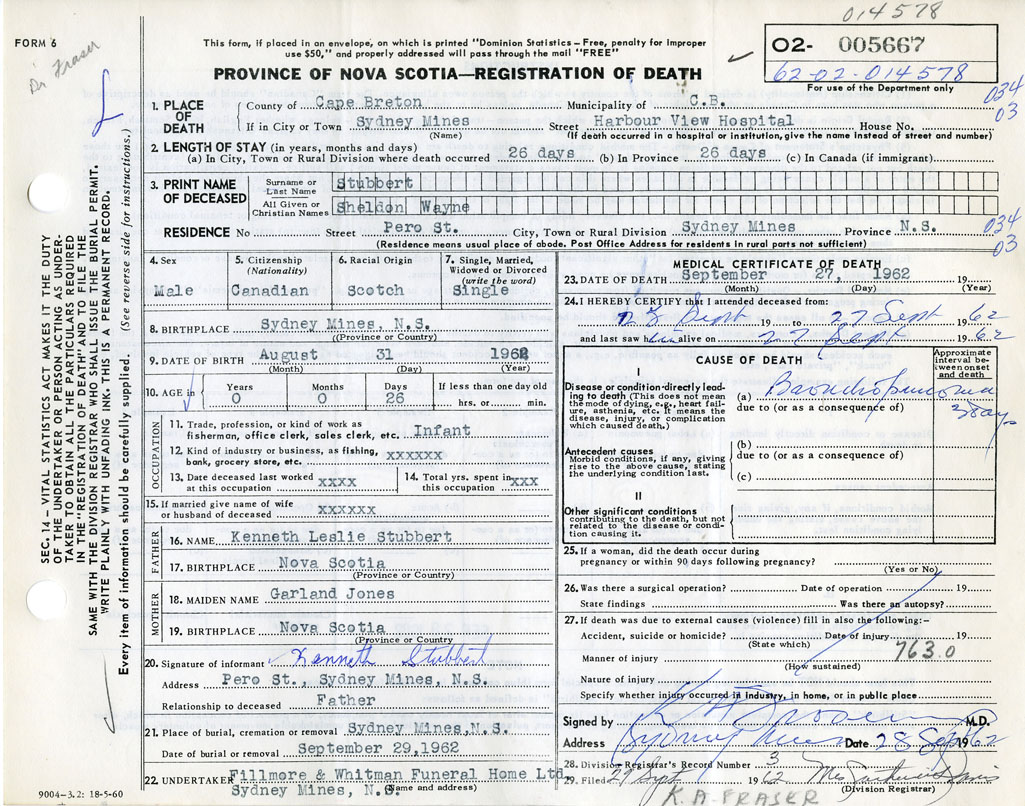 014578
FORM 6
Dr Fraser
This form, if placed in an envelope, on which is printed "Dominion Statistics – Free, penalty for Improper
use $50," and properly addressed will pass through the mail "FREE"
PROVINCE OF NOVA SCOTIA—REGISTRATION OF DEATH
02- 005667
62-02-014578
For use of the Department only
034
03
1. PLACE OF DEATH
County of Cape Breton Municipality of C.B.
If in City or Town Sydney Mines Street Harbour View Hospital House No.
(Name) (If death occurred in a hospital or institution, give the name instead of street and number)
2. LENGTH OF STAY (in years, months and days)
(a) In City, Town or Rural Division where death occurred 26 days (b) In Province 26 days (c) In Canada (if immigrant)
3. PRINT NAME OF DECEASED
Surname or Last Name Stubbert
All Given or Christian Names Sheldon Wayne
RESIDENCE No Street Pero St. City, Town or Rural Division Sydney Mines Province N.S.
034
03
(Residence means usual place of abode. Post Office Address for residents in rural parts not sufficient)
4. Sex
Male
5. Citizenship
(Nationality)
Canadian
6. Racial Origin
Scotch
7. Single, Married, Widowed or Divorced
(write the word)
Single
8. BIRTHPLACE Sydney Mines, N.S.
(Province or Country)
9. DATE OF BIRTH August 31 1962
(Month) (Day) (Year)
10. AGE in
Years 0
Months 0
Days 26
If less than one day old
hrs. or min.
OCCUPATION
11. Trade, profession, or kind of work as
fisherman, office clerk, sales clerk, etc. Infant
12. Kind of industry or business, as fishing,
bank, grocery store, etc. xxxxxx
13. Date deceased last worked
at this occupation xxxx
14. Total yrs. spent in
this occupation xxx
15. If married give name of wife
or husband of deceased xxxxxx
FATHER
16. NAME Kenneth Leslie Stubbert
17. BIRTHPLACE Nova Scotia
(Province or Country)
MOTHER
18. MAIDEN NAME Garland Jones
19. BIRTHPLACE Nova Scotia
(Province or Country)
20. Signature of informant Kenneth Stubbert
Address Pero St., Sydney Mines, N.S.
Relationship to deceased Father
21. Place of burial, cremation or removal Sydney Mines, N.S.
Date of burial or removal September 29, 1962
22. UNDERTAKER Fillmore & Whitman Funeral Home Ltd.
Sydney Mines, N.S. (Name and address)
MEDICAL CERTIFICATE OF DEATH
23. DATE OF DEATH September 27, 1962 19
(Month) (Day) (Year)
24. I HEREBY CERTIFY that I attended deceased from:
Sept 19 to 27 Sept 1962
and last saw him alive on 27 Sept 1962
CAUSE OF DEATH
Approximate interval between onset and death
I
Disease or condition directly leading to death (This does not mean
the mode of dying, e.g., heart failure, asthenia, etc. It means the
disease, injury, or complication
which caused death.)
(a) Bronchopneumonia
due to (or as a consequence of)
3 days
Antecedent causes
Morbid conditions, if any, giving
rise to the above cause, stating
the underlying condition last.
(b)
due to (or as a consequence of)
(c)
II
Other significant conditions
contributing to the death, but not
related to the disease or condition causing it.
25. If a woman, did the death occur during
pregnancy or within 90 days following pregnancy?
(Yes or No)
26. Was there a surgical operation? Date of operation 19
State findings Was there an autopsy?
27. If death was due to external causes (violence) fill in also the following:—
Accident, suicide or homicide? Date of injury 19
(State which)
763.0
Manner of injury
(How sustained)
Nature of injury
Specify whether injury occurred in industry, in home, or in public place
Signed by M.D.
Address Sydney Mines Date 28 Sept 1962
28. Division Registrar's Record Number 3
29. Filed 29 Sept 1962 Mrs
(Division Registrar)
K.A. FRASER
9004-3.2: 18-5-60
SEC. 14 – VITAL STATISTICS ACT MAKES IT THE DUTY
OF THE UNDERTAKER OR PERSON ACTING AS UNDERTAKER TO OBTAIN ALL THE PARTICULARS REQUIRED
IN THE "REGISTRATION OF DEATH" AND TO FILE THE
SAME WITH THE DIVISION REGISTRAR WHO SHALL ISSUE THE BURIAL PERMIT.
WRITE PLAINLY WITH UNFADING INK. THIS IS A PERMANENT RECORD.
Every item of information should be carefully supplied. (See reverse side for instructions.)